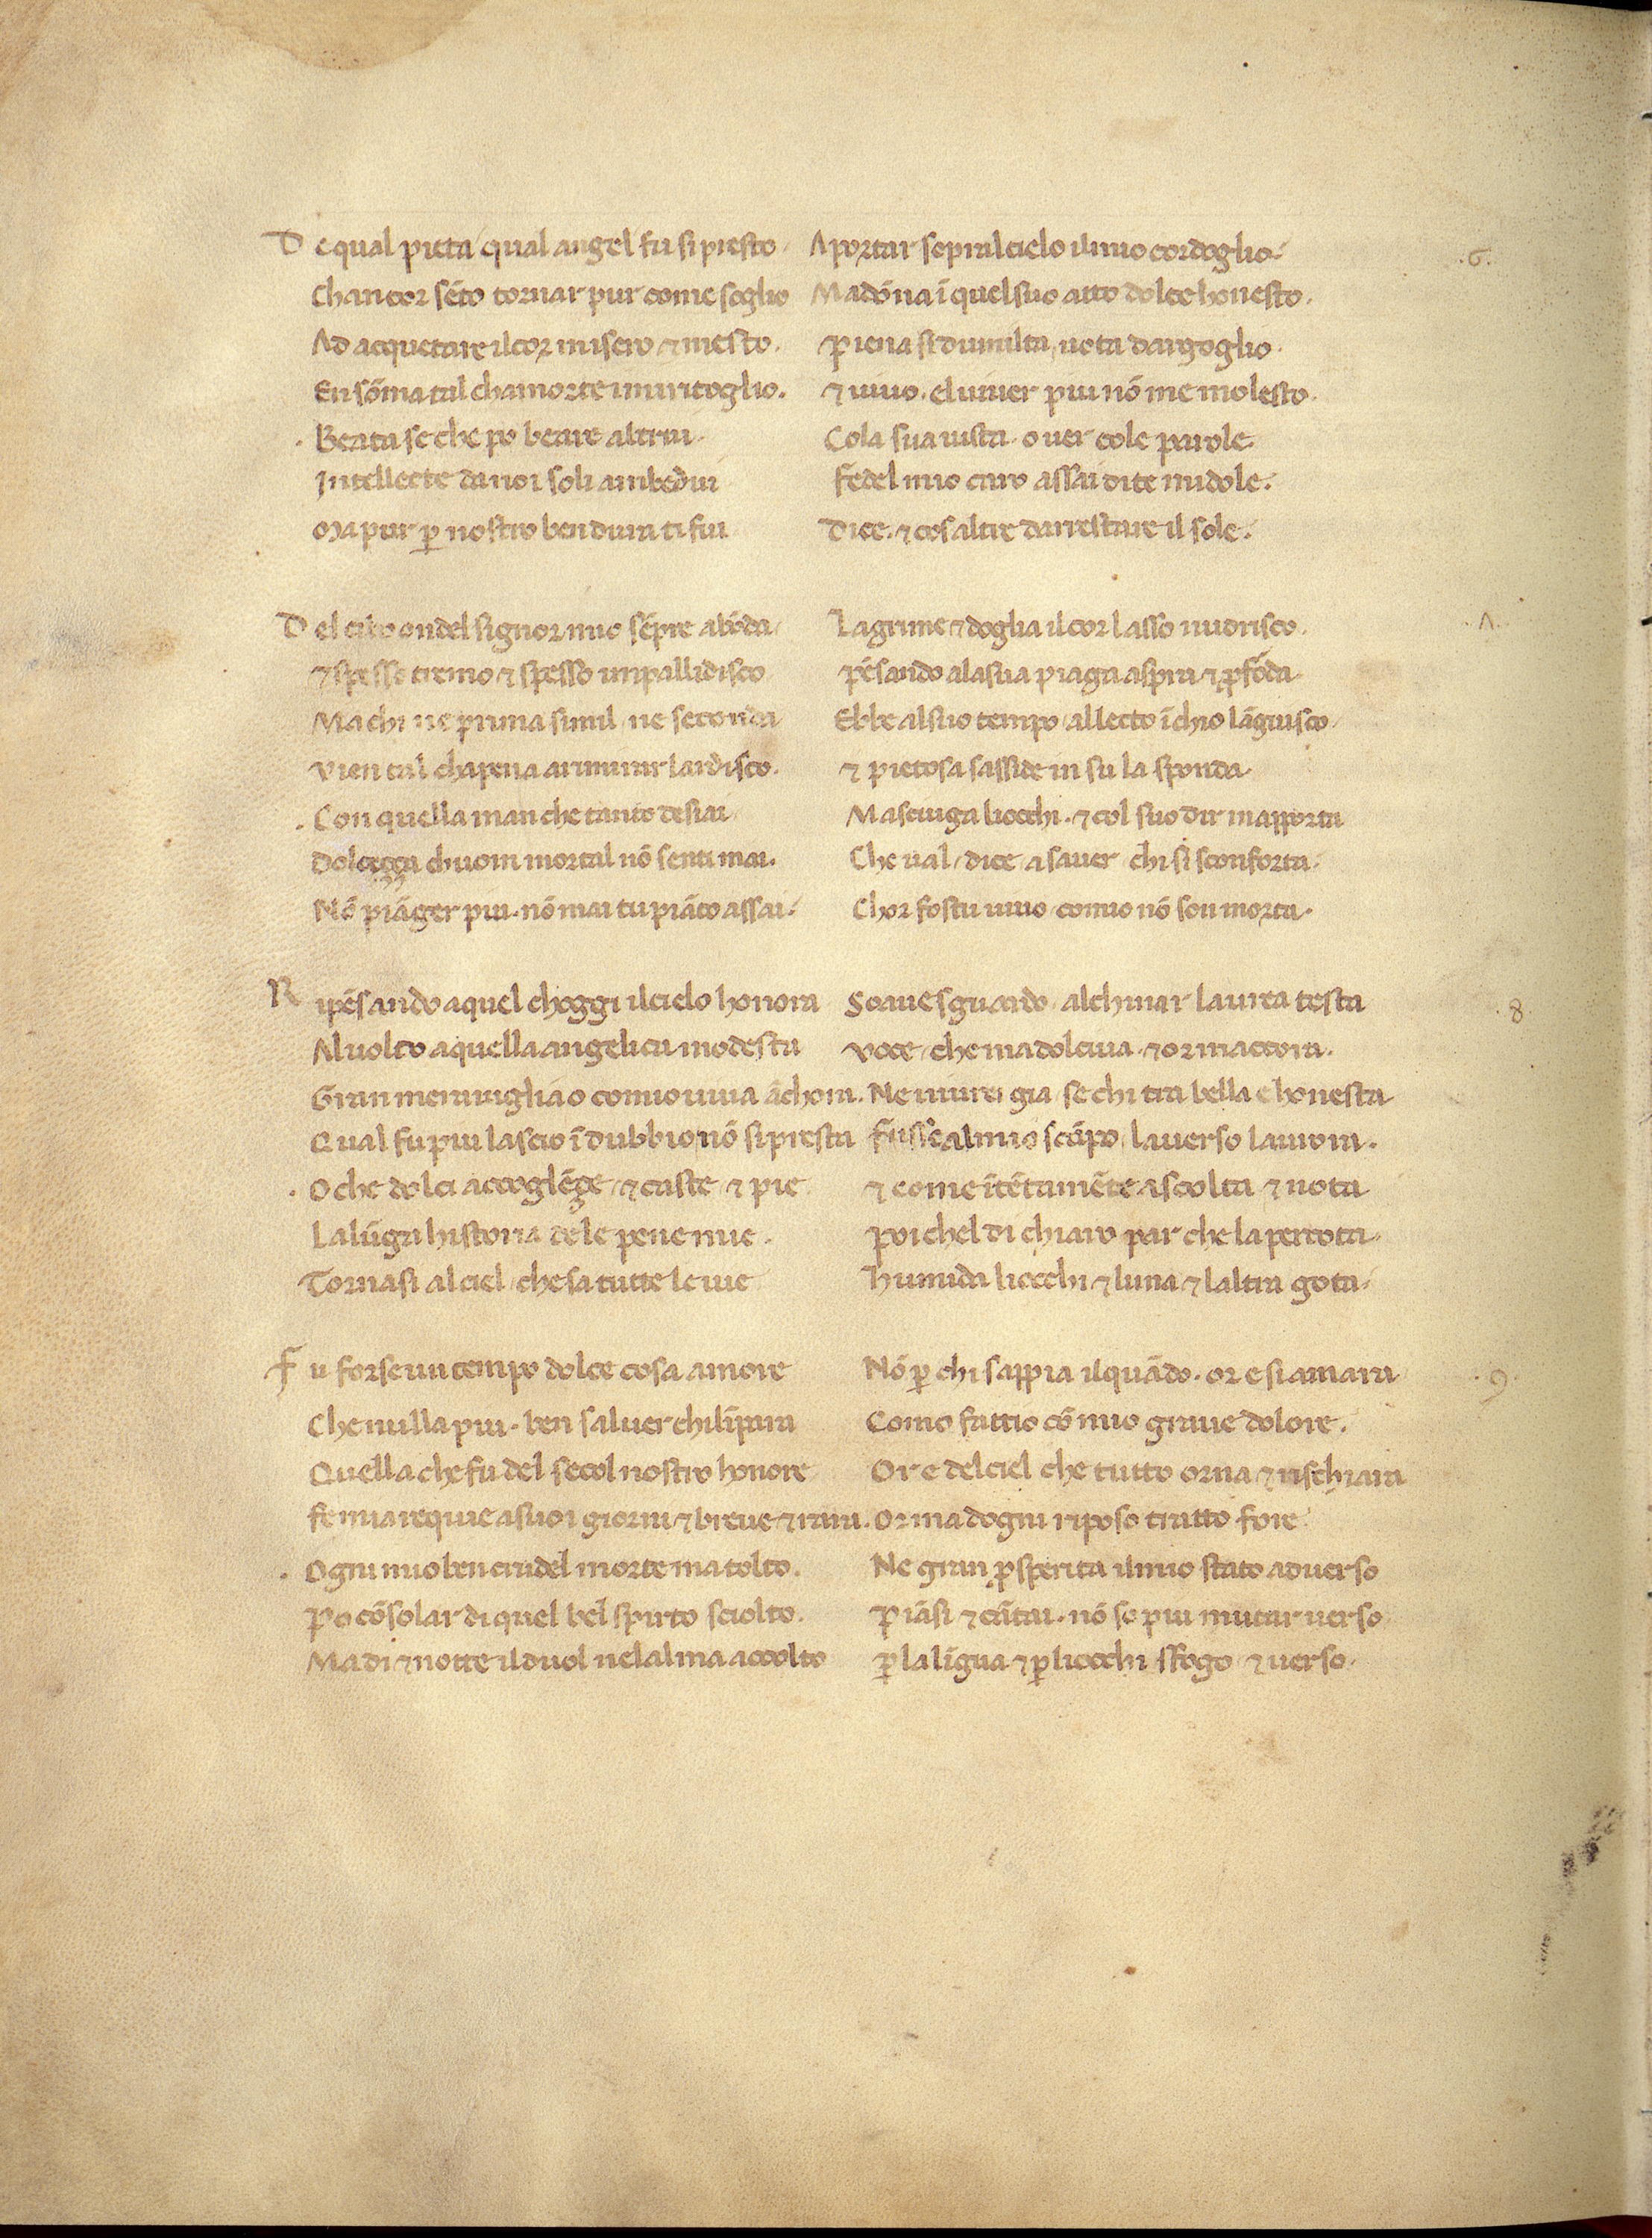 De qual pieta qual angel fu si presto. A portar sopra l cielo il mio cordoglio. .6.
Chancor sēto tornar pur come soglio Madōna ī quel suo atto dolce honesto.
Ad acquetare il cor misero ⁊ mesto. Piena si dumilta, uota dargoglio.
En sōma tal chamorte i miritoglio. ⁊ uiuo. el uiuer piu nō me molesto.
. Beata se che po beare altrui. Cola sua uista. ouer cole parole.
Intellecte da noi soli ambedui Fedel mio caro assai di te mi dole.
Ma pur ꝑ nostro ben dura ti fui Dice. ⁊ cos altre darrestare il sole.
Del cibo ondel signor mio sēpre abōda, Lagrime ⁊ doglia il cor lasso nudrisco. .Λ.
⁊ spesso tremo ⁊ spesso impallidisco pēsando ala sua piaga aspra ⁊ ꝓfōda.
Ma chi ne prima simil ne seconda Ebbe al suo tempo, al lecto ī chio lāguisco.
Vien tal chapena a rimirar lardisco. ⁊ pietosa sasside in su la sponda.
. Con quella man che tanto desiai Masciuga liocchi. ⁊ col suo dir mapporta
Dolceçça chuom mortal nō senti mai. Che ual, dice, a sauer chi si sconforta.
Nō piāger piu. nō mai tu piāto assai. Chor fostu uiuo, comio nō son morta.
Ripēsando a quel choggi il cielo honora Soaue sguardo, al chinar laurea testa .8.
Al uolto a quella angelica modesta voce, che madolciua. ⁊ or maccora.
Gran merauiglia o comio uiua āchora. Ne uiurei gia, se chi tra bella e honesta
Qual fu piu lascio ī dubbio nō si presta Fusse al mio scāpo, la uerso laurora.
. O che dolci accoglēçe, ⁊ caste ⁊ pie ⁊ come ītētamēte ascolta ⁊ nota
La lūga historia dele pene mie. poi chel di chiaro par che la percota.
Tornasi al ciel, che sa tutte le uie Humida liocchi ⁊ luna ⁊ laltra gota.
Fu forse un tempo dolce cosa amore Nō ꝑ chi sappia il quādo. or e si amara .9.
Che nulla piu. ben sa l uer chi līpara Como fattio cō mio graue dolore.
Quella che fu del secol nostro honore Or e del ciel che tutto orna ⁊ rischiara
Fe mia requie a suoi giorni ⁊ breue ⁊ rara. Or ma dogni riposo tratto fore.
. Ogni mio ben crudel morte ma tolto. Ne gran ꝓsperita il mio stato aduerso
Po cōsolar di quel bel spirto sciolto. Piāsi ⁊ cātai. nō so piu mutar uerso
Ma di ⁊ notte il duol nel alma accolto ꝑ la līgua ⁊ ꝑ liocchi sfogo ⁊ uerso.